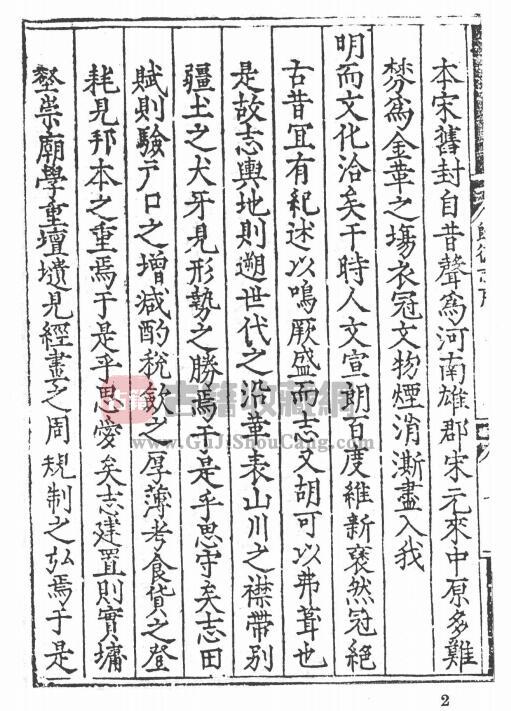 本宋舊封自昔聲為河南雄郡宋元來中原多難
棼為金革之塲衣冠文物煙消澌盡入我
明而文化洽矣于時人文宣朗百度維新裒然冠絕
古昔冝有紀述以鳴厥盛而志又胡可以弗葺也
是故志輿地則遡世代之沿革表山川之襟帶别
疆土之犬牙見形勢之勝焉于是乎思守矣志田
賦則驗户口之增減酌稅歛之厚薄考食貨之登
耗見邦本之重焉于是乎思愛矣志建置則實墉
壑崇廟學重壇壝見經畫之周規制之弘焉于是
古籍 古籍收藏網
www.GuJiShouCang.com
2